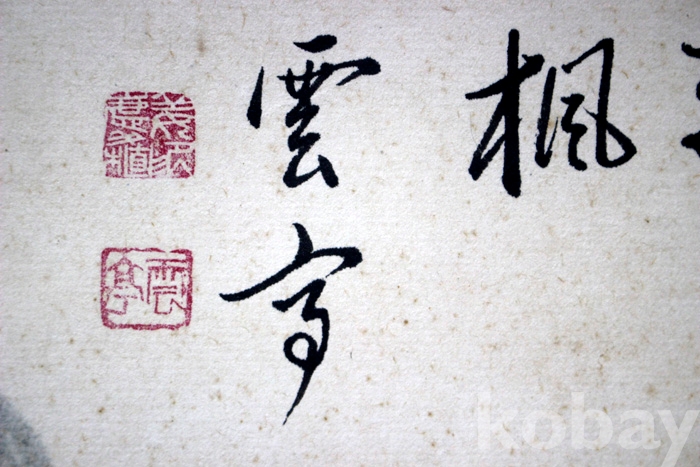 楓
雲亭
雲亭
kobay